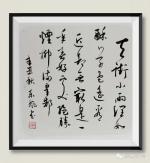 天街小雨润如
酥草色遥看
近却无最是一
年春好处绝胜
烟柳满皇都